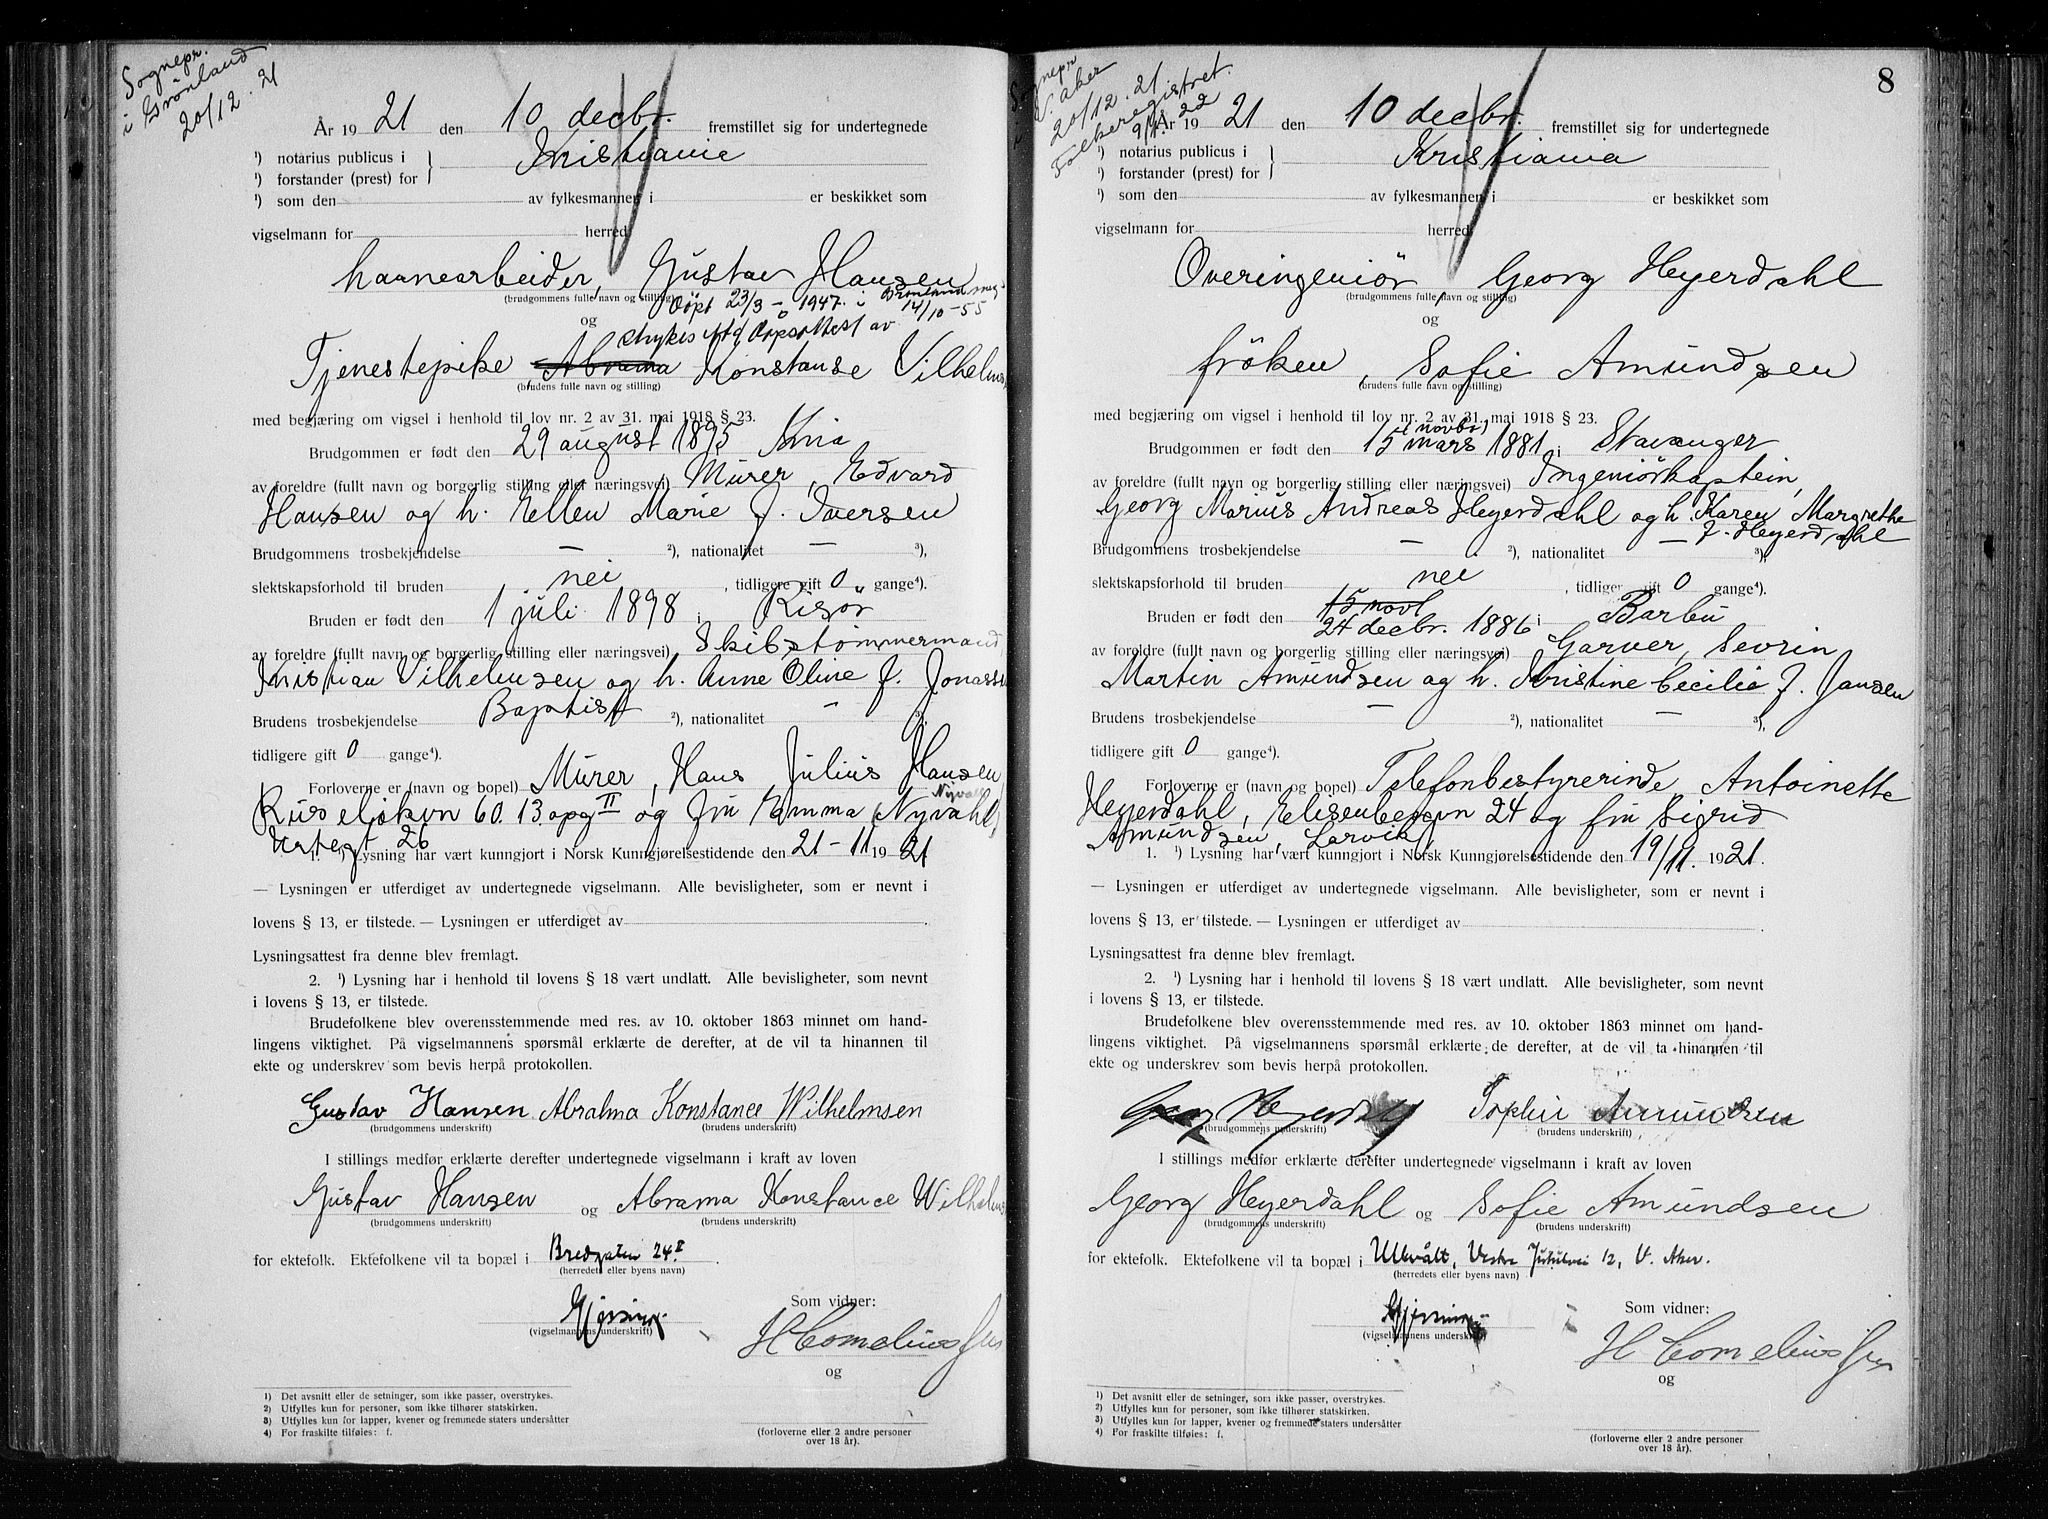 Sognepr.
i Grønland
20/12. 21
År 1921 den 10 decbr. fremstillet sig for undertegnede
¹) notarius publicus i
¹) forstander (prest) for } Kristiania
¹) som den av fylkesmannen i er beskikket som
vigselmann for herred
havnearbeider, Gustav Hansen
(brudgommens fulle navn og stilling)
Döpt 23/3 - 1947 i
14/10-55
og
strykes iflg dåpsattest av
Tjenestepike Abrama Konstanse Vilhelms
(brudens fulle navn og stilling)
med begjæring om vigsel i henhold til lov nr. 2 av 31. mai 1918 § 23.
Brudgommen er født den 29 august 1895 Kria
av foreldre (fullt navn og borgerlig stilling eller næringsvei) Murer, Edvard
Hansen og h. Ellen Marie f. Iversen
Brudgommens trosbekjendelse — ²), nationalitet — ³),
slektskapsforhold til bruden nei, tidligere gift 0 gange⁴).
Bruden er født den 1 juli 1898 i Risör
av foreldre (fullt navn og borgerlig stilling eller næringsvei) Skibstömmermand
Kristian Vilhelmsen og h. Anne Oline f. Jonass
Brudens trosbekjendelse Baptist ²), nationalitet - ³),
tidligere gift 0 gange⁴).
Forloverne er (navn og bopel) Murer, Hans Julius Hansen
Nyvall
Ruseløkvn 60. 13. opg II og fru Emma (Nyvahl)
Urtegt 26
1. ¹) Lysning har vært kunngjort i Norsk Kunngjørelsestidende den 21-11 1921
— Lysningen er utferdiget av undertegnede vigselmann. Alle bevisligheter, som er nevnt i
lovens § 13, er tilstede. — Lysningen er utferdiget av
Lysningsattest fra denne blev fremlagt.
2. ¹) Lysning har i henhold til lovens § 18 vært undlatt. Alle bevisligheter, som nevnt
i lovens § 13, er tilstede.
Brudefolkene blev overensstemmende med res. av 10. oktober 1863 minnet om hand-
lingens viktighet. På vigselmannens spørsmål erklærte de derefter, at de vil ta hinannen til
ekte og underskrev som bevis herpå protokollen.
Gustav Hansen Abralma Konstance Wilhelmsen
(brudgommens underskrift) (brudens underskrift)
I stillings medfør erklærte derefter undertegnede vigselmann i kraft av loven
Gustav Hansen og Abrama Konstance Wilhelms
(brudgommens underskrift) (brudens underskrift)
for ektefolk. Ektefolkene vil ta bopæl i Bredgaten 24 I.
(herredets eller byens navn)
Som vidner:
(vigselmannens underskrift)
H Cornelius
og
1) Det avsnitt eller de setninger, som ikke passer, overstrykes.
2) Utfylles kun for personer, som ikke tilhører statskirken.
3) Utfylles kun for lapper, kvener og fremmede staters undersåtter
4) For fraskilte tilføies: f.
(forloverne eller 2 andre personer
over 18 år).
8
V. Aker
20/12. 21
Folkeregistret.
År 1921 den 10 decbr. fremstillet sig for undertegnede
¹) notarius publicus i
¹) forstander (prest) for } Kristiania
¹) som den av fylkesmannen i er beskikket som
vigselmann for herred
Overingeniör, Georg Heyerdahl
(brudgommens fulle navn og stilling)
og
fröken, Sofie Amundsen
(brudens fulle navn og stilling)
med begjæring om vigsel i henhold til lov nr. 2 av 31. mai 1918 § 23.
novbr.
Brudgommen er født den 15 mars 1881 i Stavanger
av foreldre (fullt navn og borgerlig stilling eller næringsvei) Ingeniörkaptein,
Georg Marius Andreas Heyerdahl og h. Karen Margrethe
f. Heyerdahl
Brudgommens trosbekjendelse — ²), nationalitet — ³),
slektskapsforhold til bruden nei, tidligere gift 0 gange⁴).
15 novb
Bruden er født den 24 decbr. 1886 i Barbu
av foreldre (fullt navn og borgerlig stilling eller næringsvei) Garver, Sevrin
Martin Amundsen og h. Kristine Cecilie f. Jansen
Brudens trosbekjendelse — ²), nationalitet — ³),
tidligere gift 0 gange⁴).
Forloverne er (navn og bopel) Telefonbestyrerinde Antoinette
Heyerdahl, Elisenbergvn 24 og fru Sigrid
Amundsen, Larvik
1. ¹) Lysning har vært kunngjort i Norsk Kunngjørelsestidende den 19/11. 1921.
— Lysningen er utferdiget av undertegnede vigselmann. Alle bevisligheter, som er nevnt i
lovens § 13, er tilstede. — Lysningen er utferdiget av
Lysningsattest fra denne blev fremlagt.
2. ¹) Lysning har i henhold til lovens § 18 vært undlatt. Alle bevisligheter, som nevnt
i lovens § 13, er tilstede.
Brudefolkene blev overensstemmende med res. av 10. oktober 1863 minnet om hand-
lingens viktighet. På vigselmannens spørsmål erklærte de derefter, at de vil ta hinannen til
ekte og underskrev som bevis herpå protokollen.
Georg Heyerdahl Sophie Amundsen
(brudgommens underskrift) (brudens underskrift)
I stillings medfør erklærte derefter undertegnede vigselmann i kraft av loven
Georg Heyerdahl og Sofie Amundsen
(brudgommens underskrift) (brudens underskrift)
for ektefolk. Ektefolkene vil ta bopæl i Ullevålt, Vestre Jutulvei 12, V. Aker.
(herredets eller byens navn)
Som vidner:
(vigselmannens underskrift)
H Cornelius
og
1) Det avsnitt eller de setninger, som ikke passer, overstrykes.
2) Utfylles kun for personer, som ikke tilhører statskirken.
3) Utfylles kun for lapper, kvener og fremmede staters undersåtter
4) For fraskilte tilføies: f.
(forloverne eller 2 andre personer
over 18 år).